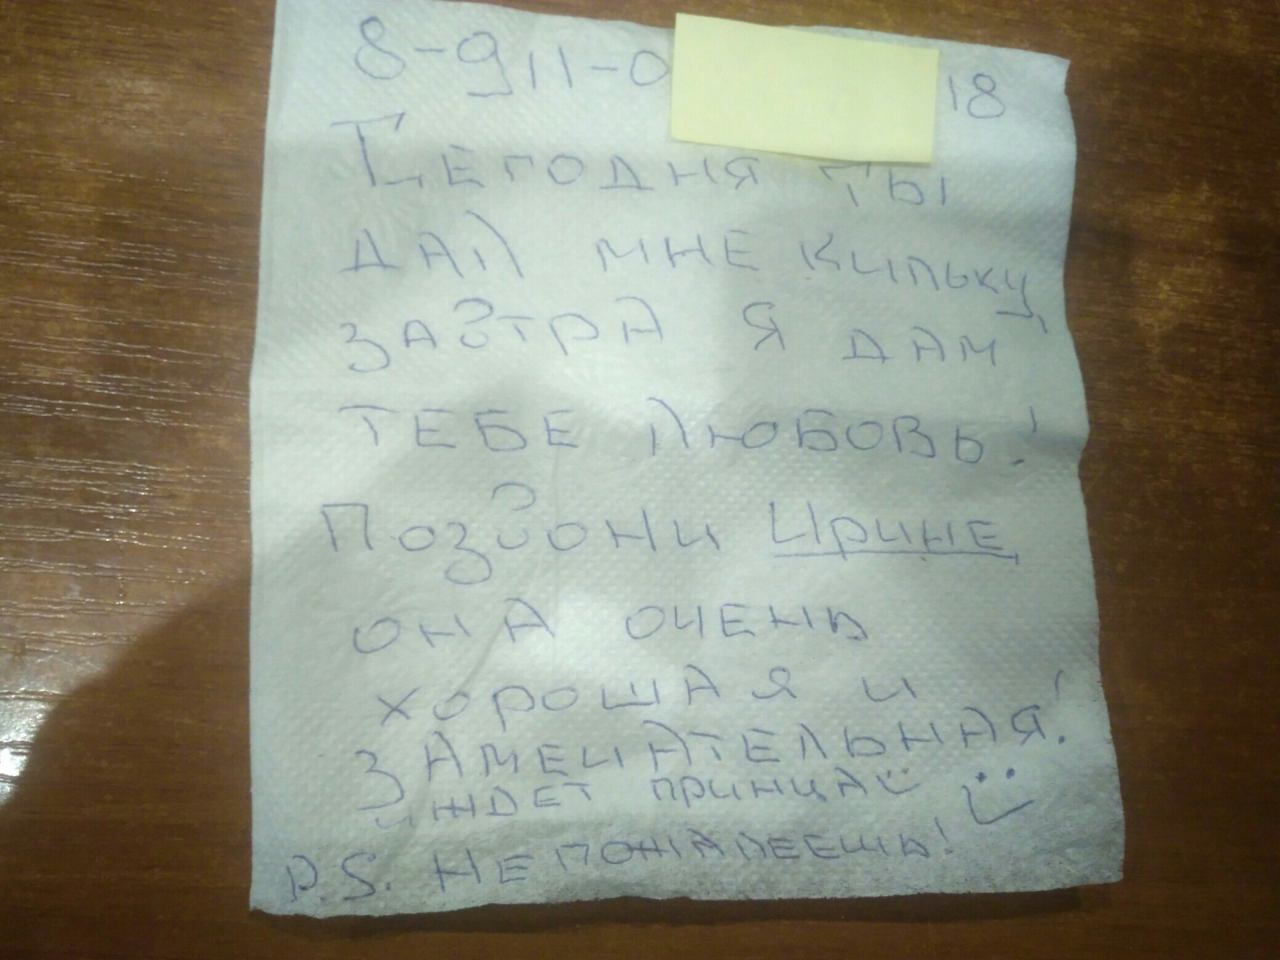 8-911-0 18
Сегодня ты
дал мне кильку
завтра я дам
тебе любовь!
Позвони Ирине
она очень
хорошая и
замечательная!
и ждет принца
P.S. Не пожалеешь!